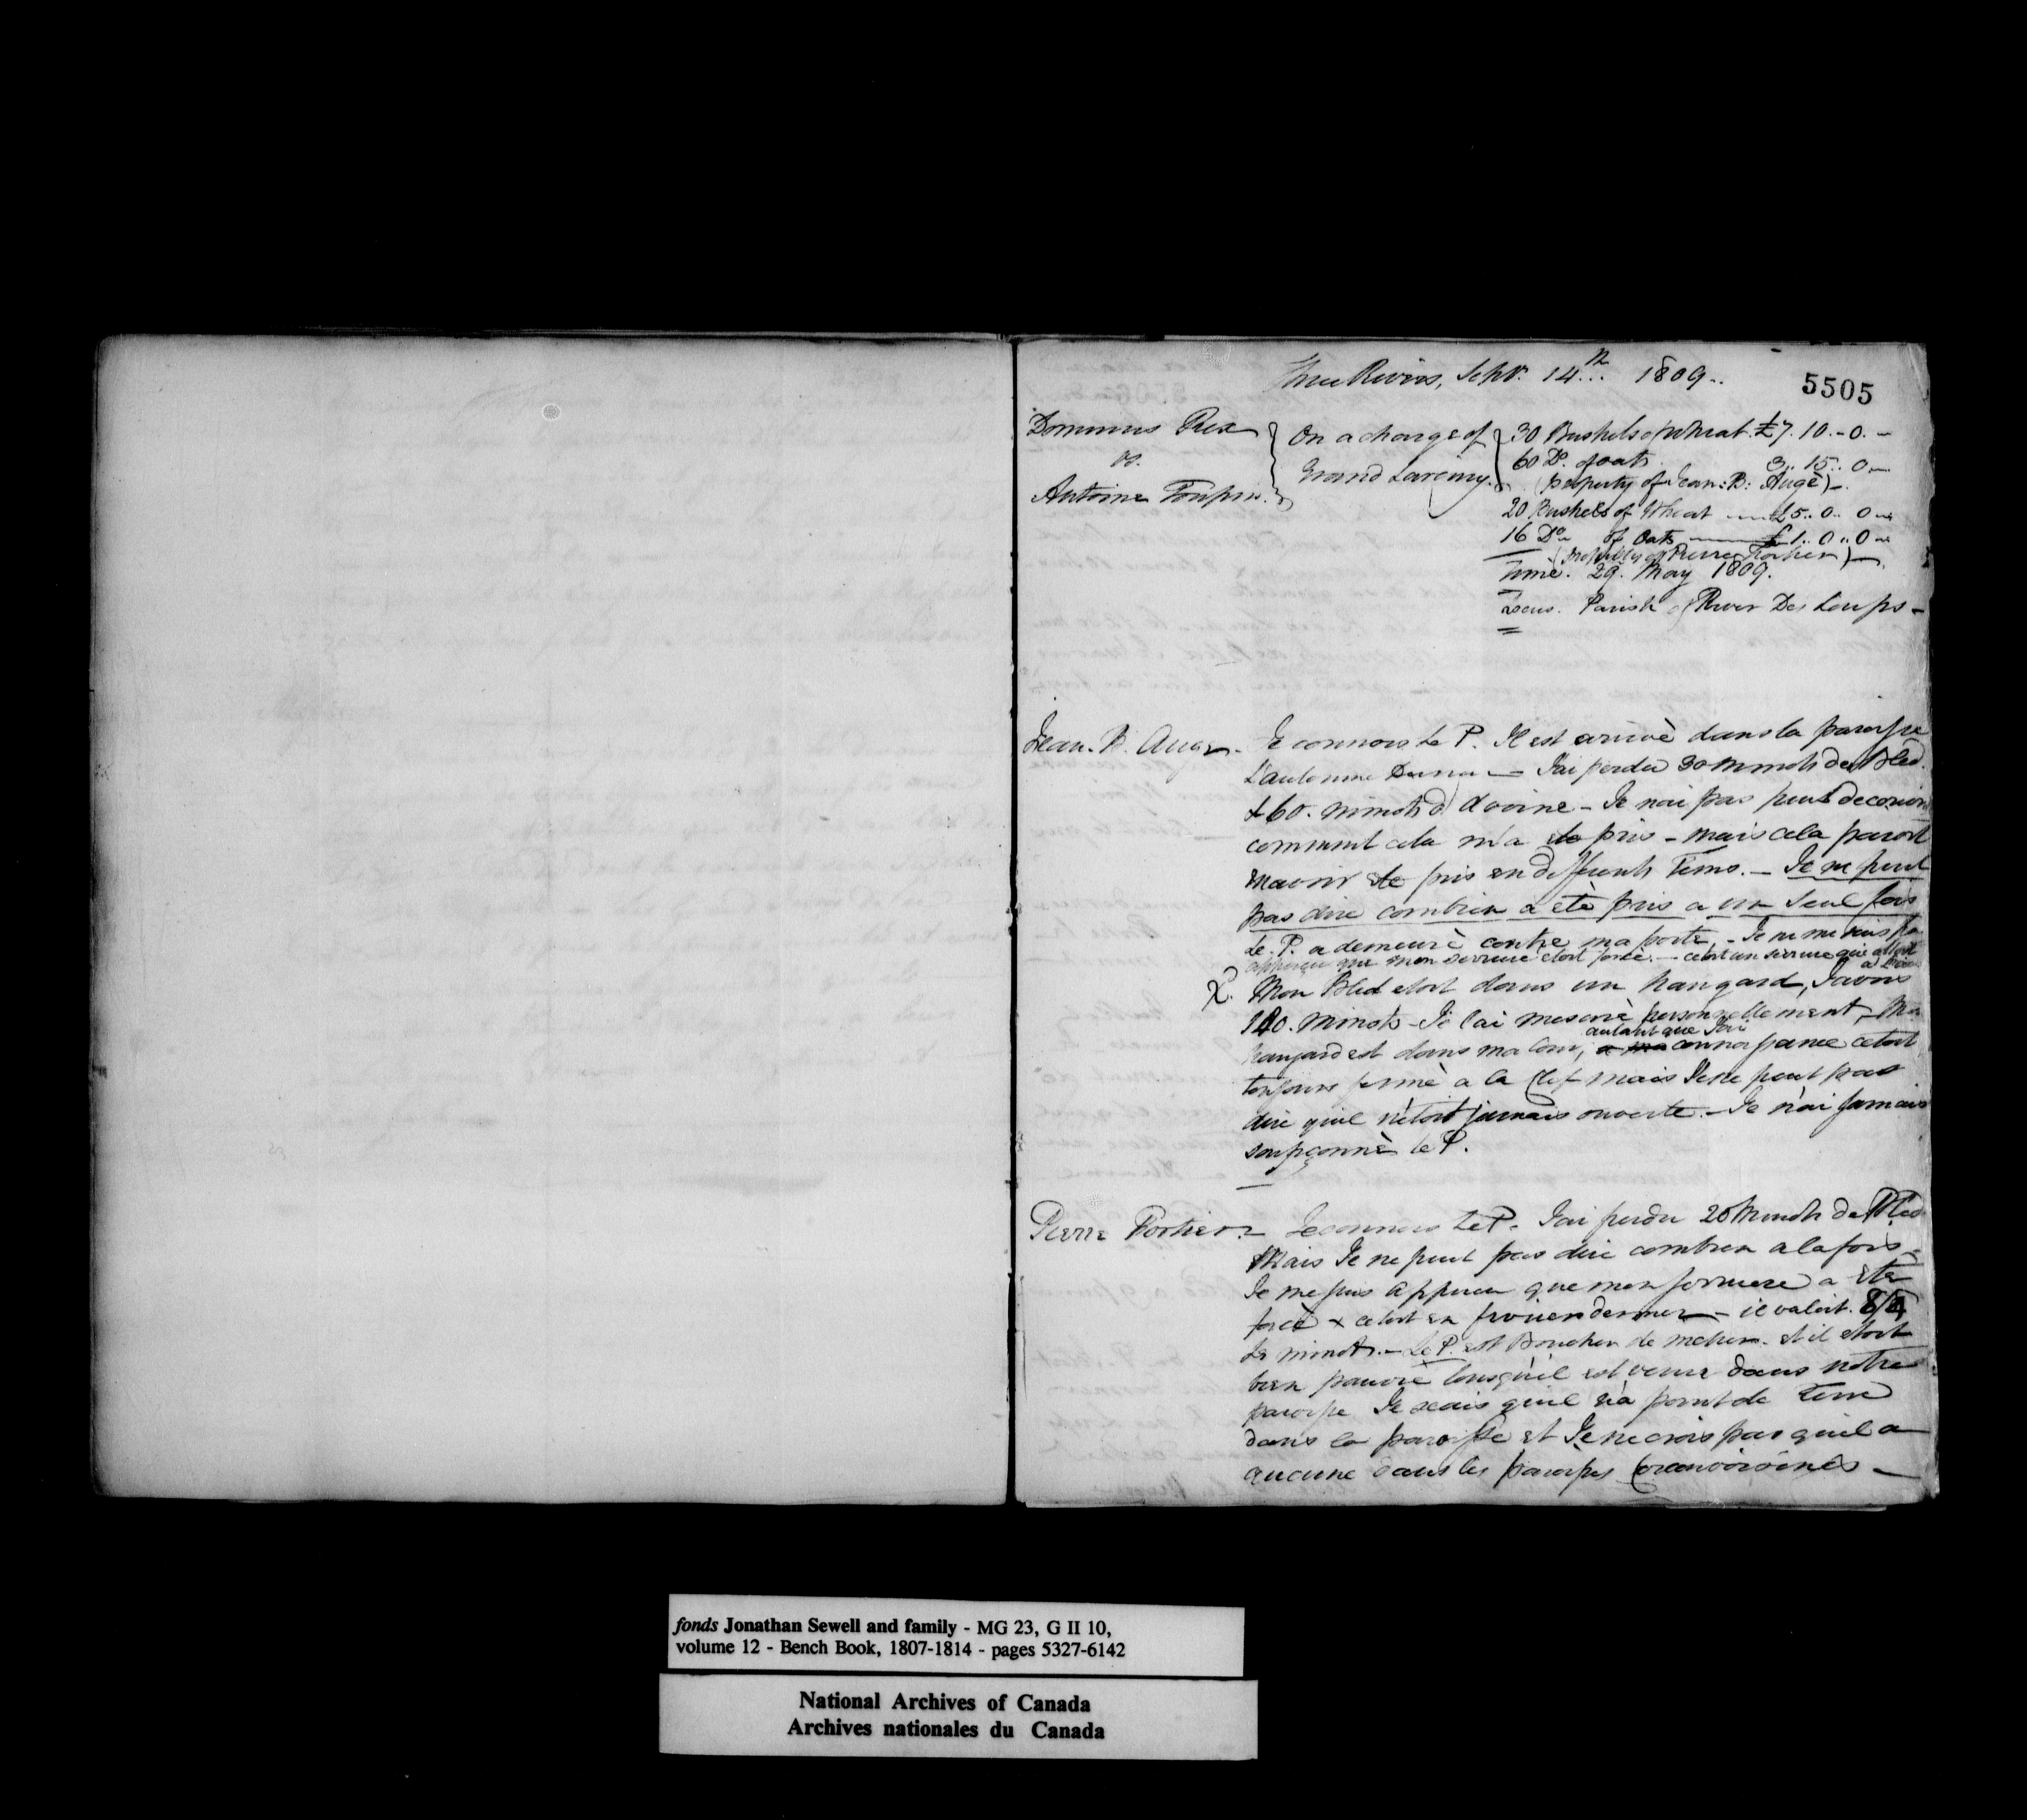 Three Rivers, Septr. 14th 1809..
5505
Dominus Rex
vs.
Antoine Toupin.
On a charge of
Grand Larceny.
30 Bushels of Wheat. £7. 10.. 0. —
60 Do. of oats 3.. 15.. 0 —
(property of Jean: B: Augé) —
20 Bushels of Wheat — £5.. 0.. 0 —
16 Do. of Oats — £1.. 0.. 0 —
(property of Pierre Fortier) —
Time. 29. May 1809.
Locus. Parish of River Des Loups —
Jean. B. Auger. Je connois le P. Il est arrivé dans la paroisse
L'automne Dernier — J'ai perdu 30 Minots de Bled.
& 60. minots d'avoine — Je n'ai pas peut decouvrir
comment cela m'a ete pris — mais cela paroit
m'avoir ete pris en differents Tems. — Je ne peut
pas dire combien a etè pris a un seul fois
Le P. a demeuré contre ma porte, — Je ne me suis pas
apperçu que mon serrure etoit forcé. — cetoit un serrure qui etoit
X. Mon Bled etoit dans un hangard, J'avois
120. minots — Je l'ai mesuré personnellement, — Mon
autant que J'ai
hangard est dans ma Cour, a ma connoissance cetoit
toujours fermé a la Clef mais Je ne peut pas
dire qu'il n'etoit jamais ouverte. — Je n'ai jamais
soupçonné le P.
Pierre Fortier — Je connois Le P. J'ai perdu 20 Minots de Bled
Mais Je ne peut pas dire combien a la fois —
Je me suis appercu que mon serrure a ete
forcé & cetoit en fevrier dernier — il valoit
Le minot. — Le P. est Boucher de metier. et il etoit
bien pauvre lorsqu'il est venu dans notre
paroisse Je scais qu'il n'a point de Terre
dans la paroisse et Je ne crois pas qu'il a
aucune dans les paroisses Circonvoisines —
fonds Jonathan Sewell and family - MG 23, G II 10,
volume 12 - Bench Book, 1807-1814 - pages 5327-6142
National Archives of Canada
Archives nationales du Canada